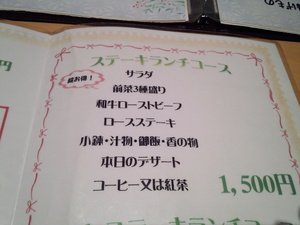 げもの
ステーキランチコース
超お得！
サラダ
前菜3種盛り
和牛ローストビーフ
ロースステーキ
小鉢・汁物・御飯・香の物
本日のデザート
コーヒー又は紅茶
1,500円
円
ステーキランチコー